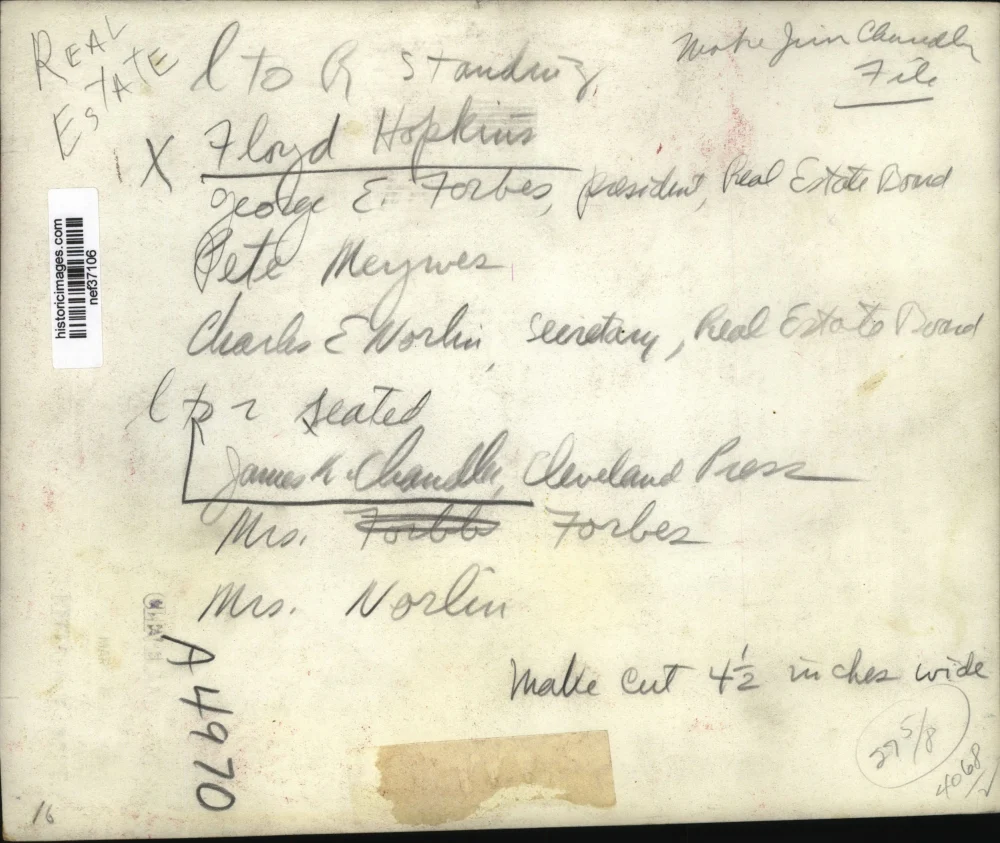 REAL
ESTATE
Make Jim Chandler
File
l to R standing
X Floyd Hopkins
George E. Forbes, president, Real Estate Board
Pete Meywes
Charles E Norlin, secretary, Real Estate Board
l to r seated
James K. Chandler, Cleveland Press
Mrs. Forbes
Mrs. Norlin
Make cut 4½ inches wide
27 5/8
4068
A4970
16
historicimages.com
nef37106